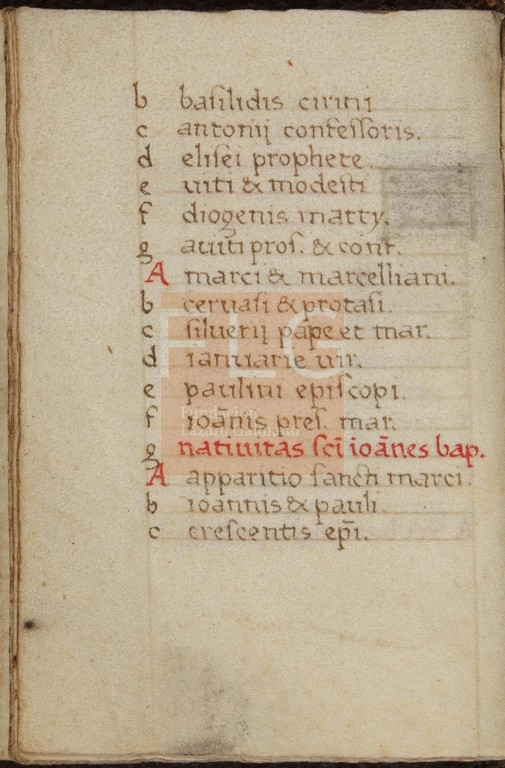 b basilidis cirini
c antonij confessoris.
d elisei prophete.
e viti & modesti
f diogenis marty.
g aviti pres. & conf.
A marci & marcelliani.
b cervasi & protasi.
c silverij pape et mar.
d ianuarie vir.
e paulini episcopi.
f ioānis pres. mar.
g nativitas scī ioānes bap.
A apparitio sancti marci.
b ioannis & pauli.
c crescentis ep̄i.
FLG
Fundación
Lázaro Galdiano